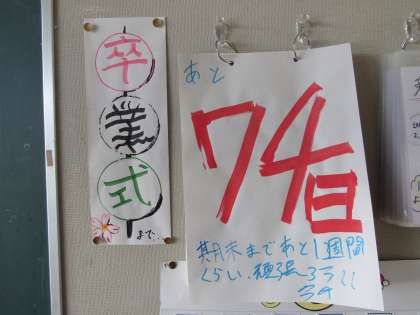 卒業式
まで、
あと
74日
期末まであと1週間
くらい、頑張ろう!!